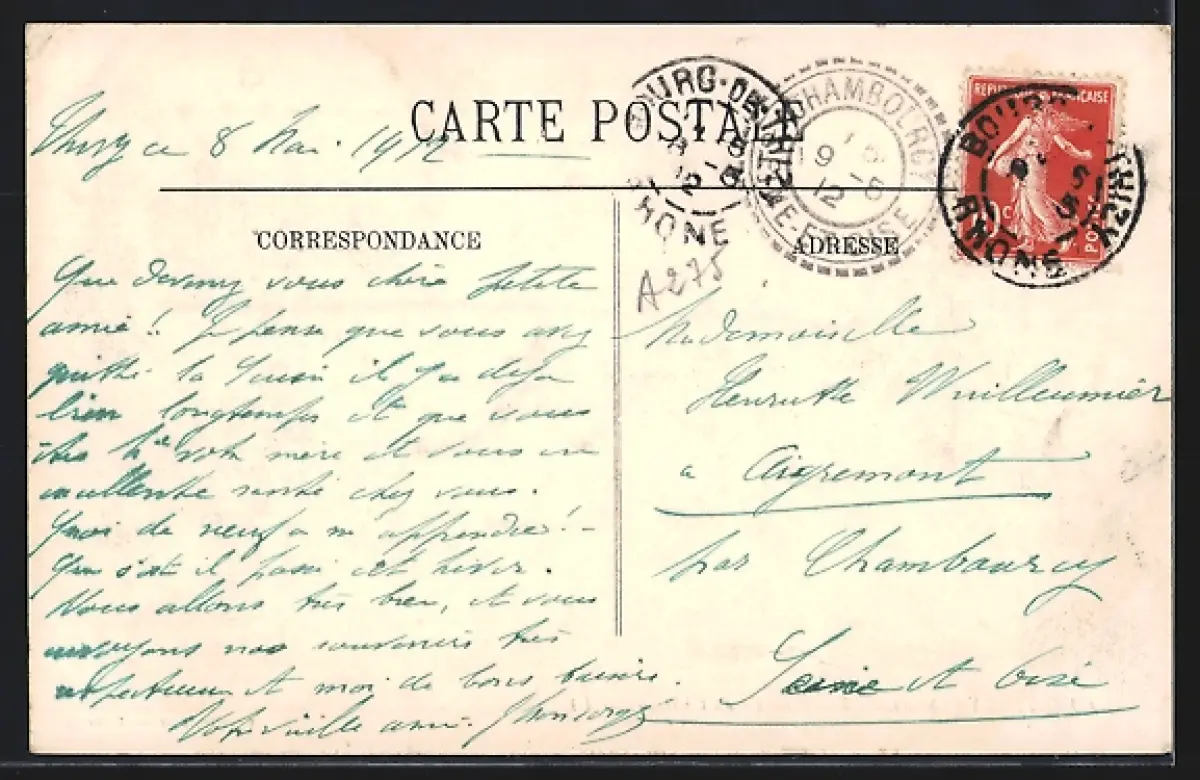 CARTE POSTALE
Thizy ce 8 Mai 1912
BOURG-DE-THIZY
RHONE
CHAMBOURCY
SEINE-ET-OISE
9 - 5
12
REPUBLIQUE FRANÇAISE
10c
POSTES
BOURG-DE-THIZY
RHONE
CORRESPONDANCE
ADRESSE
A275
Que devenez vous chère petite
amie !. Je pense que vous avez
quitté la Suisse il y a déjà
bien longtemps et que vous
êtes votre mère et vous en
excellente santé chez vous.
Quoi de neuf à m'apprendre ! -
Que s'est il passé cet hiver.
Nous allons très bien, et vous
envoyons nos souvenirs très
respectueux et moi de bons baisers.
Votre vieille amie.
Mademoiselle
Henriette Wuilleumier
à Aigremont
par Chambourcy
Seine et Oise